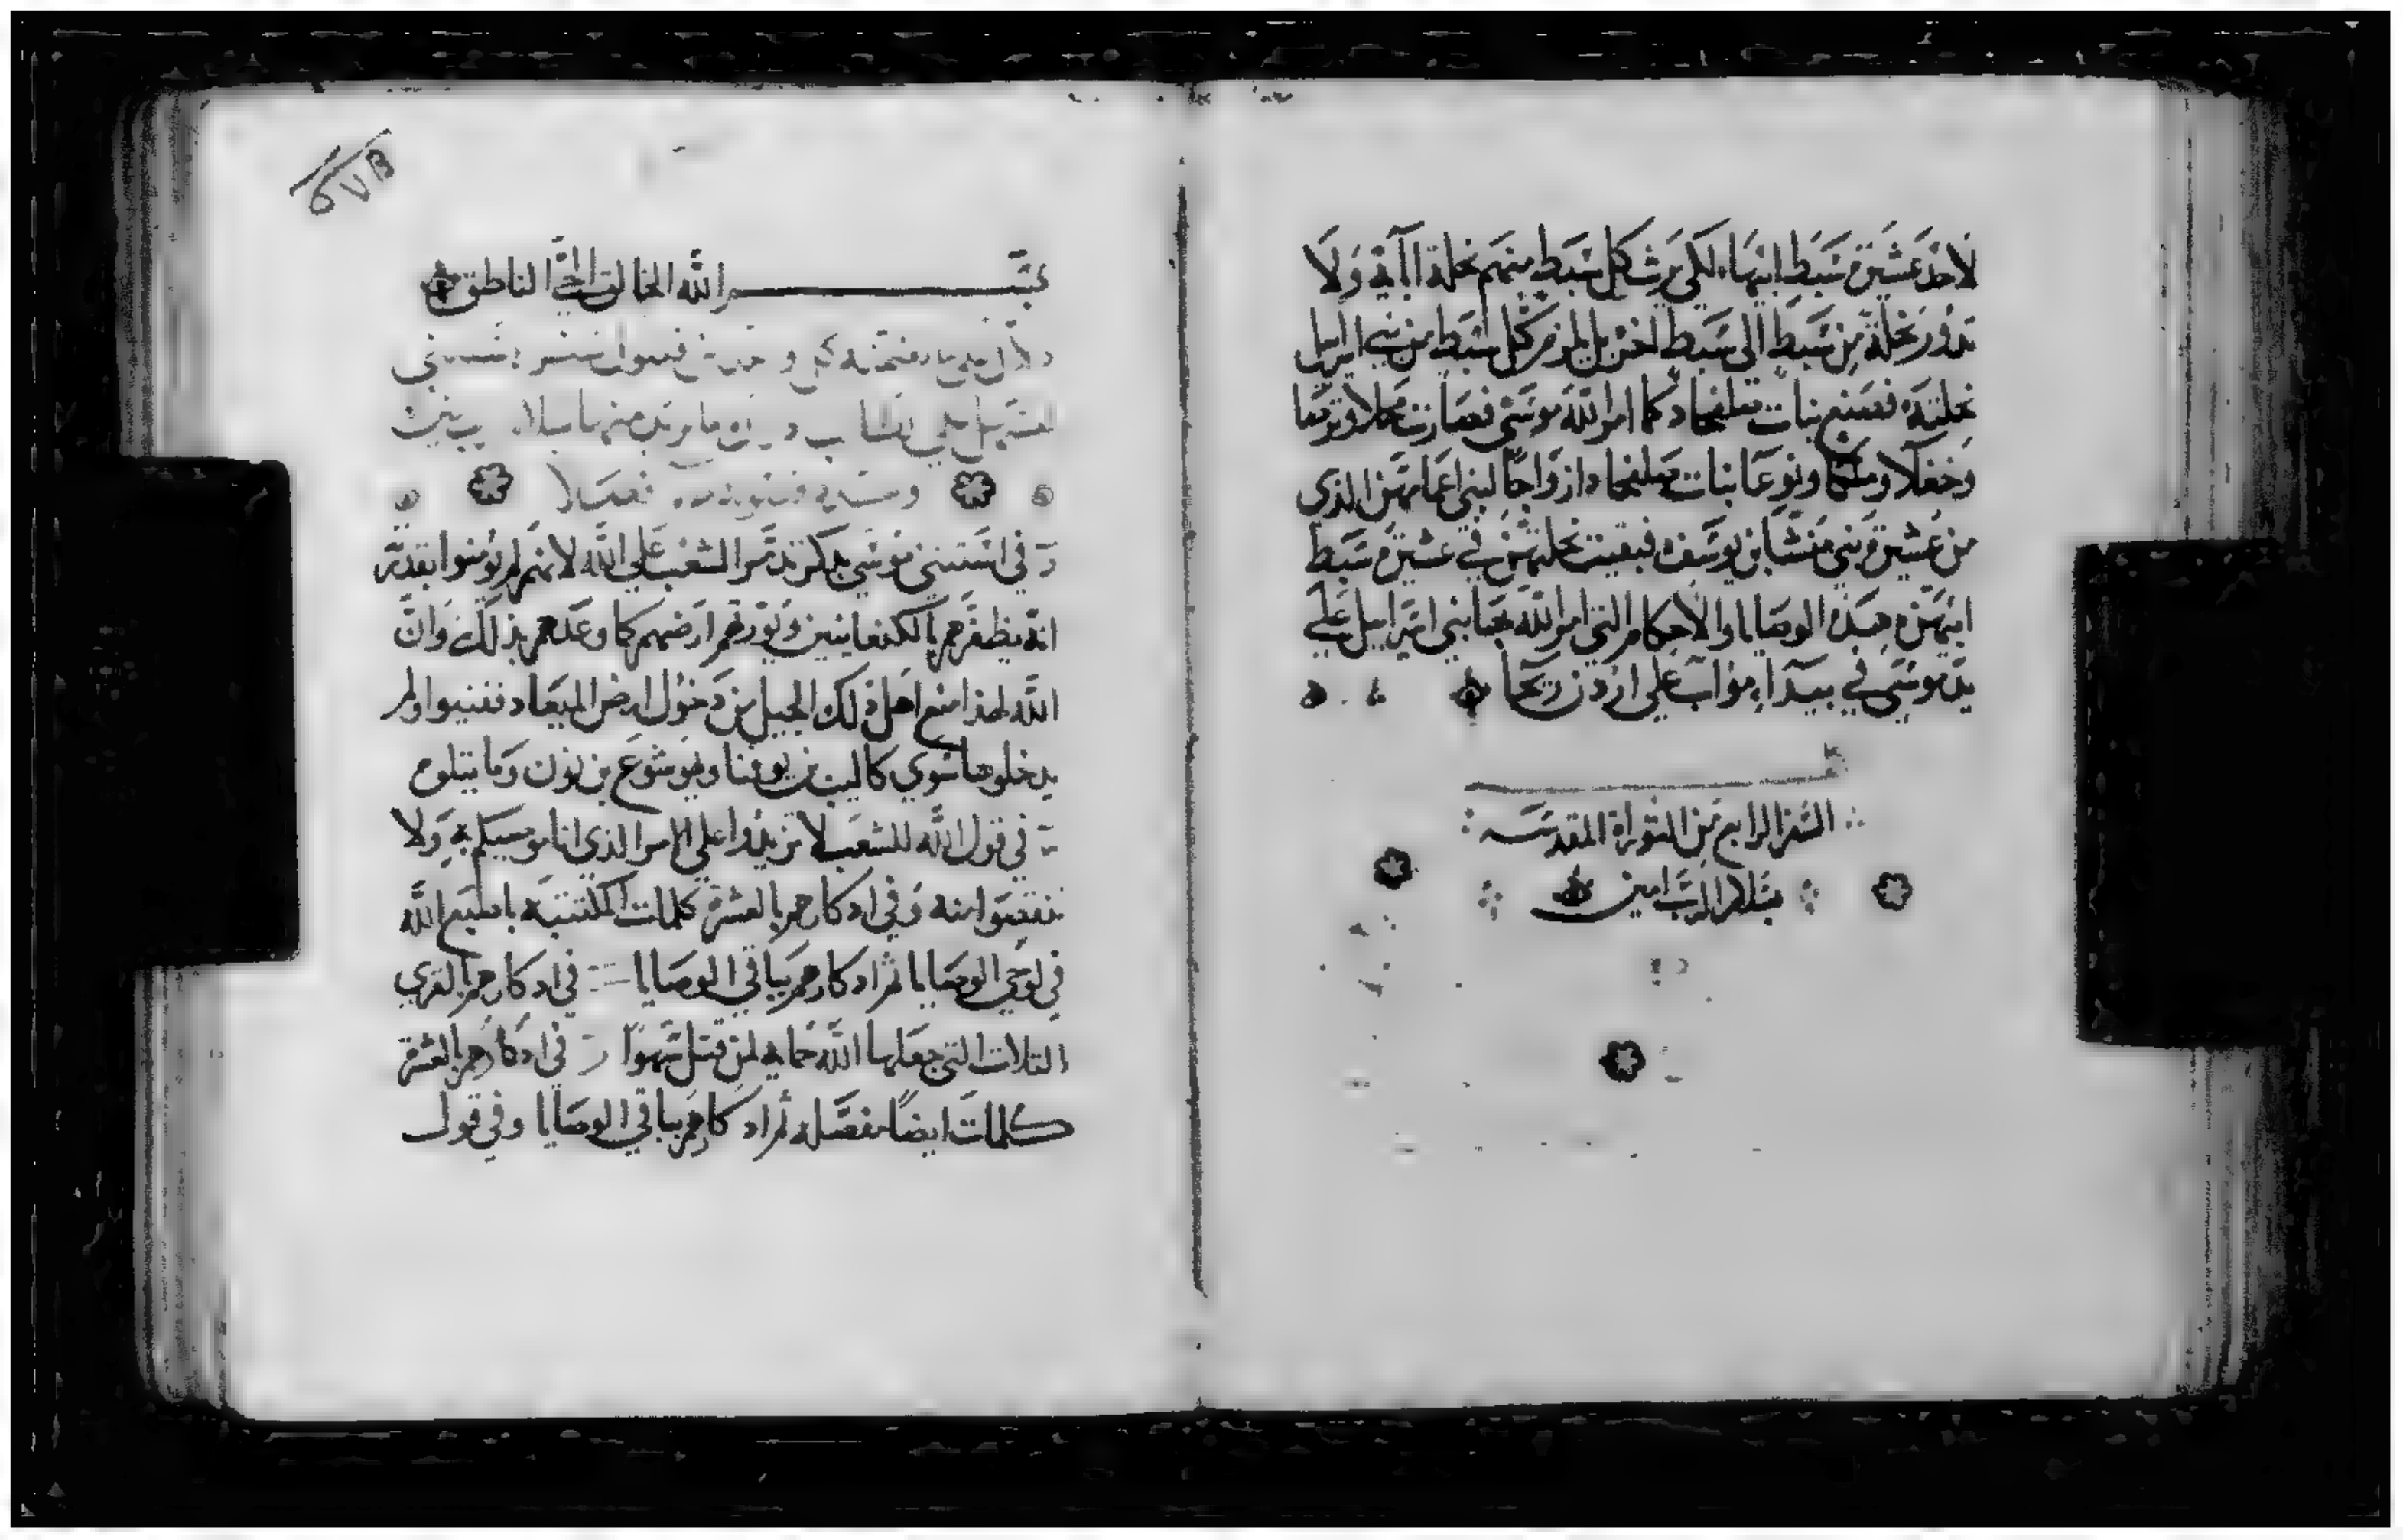 لاحد عشيرة سبط ابيها، لكي يرث كل سبط منهم نحلة آبايه ولا
تدور نحلة من سبط الى سبط اخر بل يلزم كل سبط من بني اسرايل
نحلته فصنع بنات صلفحاد كما امر الله موسى فصارت محلا وترصا
وحغلا وملكا ونوعا بنات صلفحاد ازواجا لبني اعمامهن الذي
من عشيرة بني منشا بن يوسف فبقيت نحلتهن في عشيرة سبط
ابيهن هذه الوصايا والاحكام التي امر الله بها بني اسراييل على
يد موسى في بيدآء مواب على اردن ريحا
السفر الرابع من التوراة المقدسه
بسلام الرب امين
بسم الله الخالق الحي الناطق
فصلا
في استثني موسى ذكر تذمر الشعب على الله لانهم لم يؤمنوا بقدرته
انه يظفرهم بالكنعانيين ويورثهم ارضهم كما وعدهم بذلك وان
الله لهذا منع اهل ذلك الجيل من دخول ارض الميعاد ففنيوا ولم
يدخلوها سوي كاليب بن يوفنا ويوشوع بن نون وما يتلوه
في قول الله للشعب لا تزيدوا على الامر الذي انا موصيكم به ولا
تنقصوا منه وفي ادكارهم بالعشرة كلمات المكتتبه باصبع الله
في لوحي الوصايا ثم ادكارهم بباقي الوصايا في ادكارهم بالقري
التلات التي جعلها الله حمايه لمن قتل سهوا في ادكارهم بالعشرة
كلمات ايضا مفصله ثم ادكارهم بباقي الوصايا وفي قول